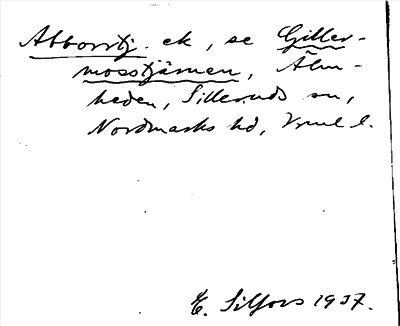 Abborrtj. ek, se Giller-
mosstjärnen, Älm-
heden, Sillerud sn,
Nordmarks hd, Vrml l.
E. Silfors 1937.